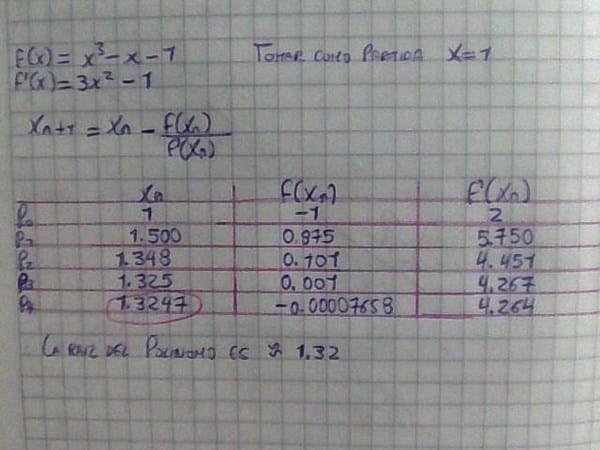 f(x) = x³-x-1 TOMAR COMO PARTIDA X=1
f'(x) = 3x²-1
Xn+1 = Xn - f(Xn)
f'(Xn)
Xn f(Xn) f'(Xn)
P0 1 -1 2
P1 1.500 0.875 5.750
P2 1.348 0.101 4.451
P3 1.325 0.001 4.267
P4 1.3247 -0.00007658 4.264
LA RAIZ DEL POLINOMIO ES ≈ 1.32